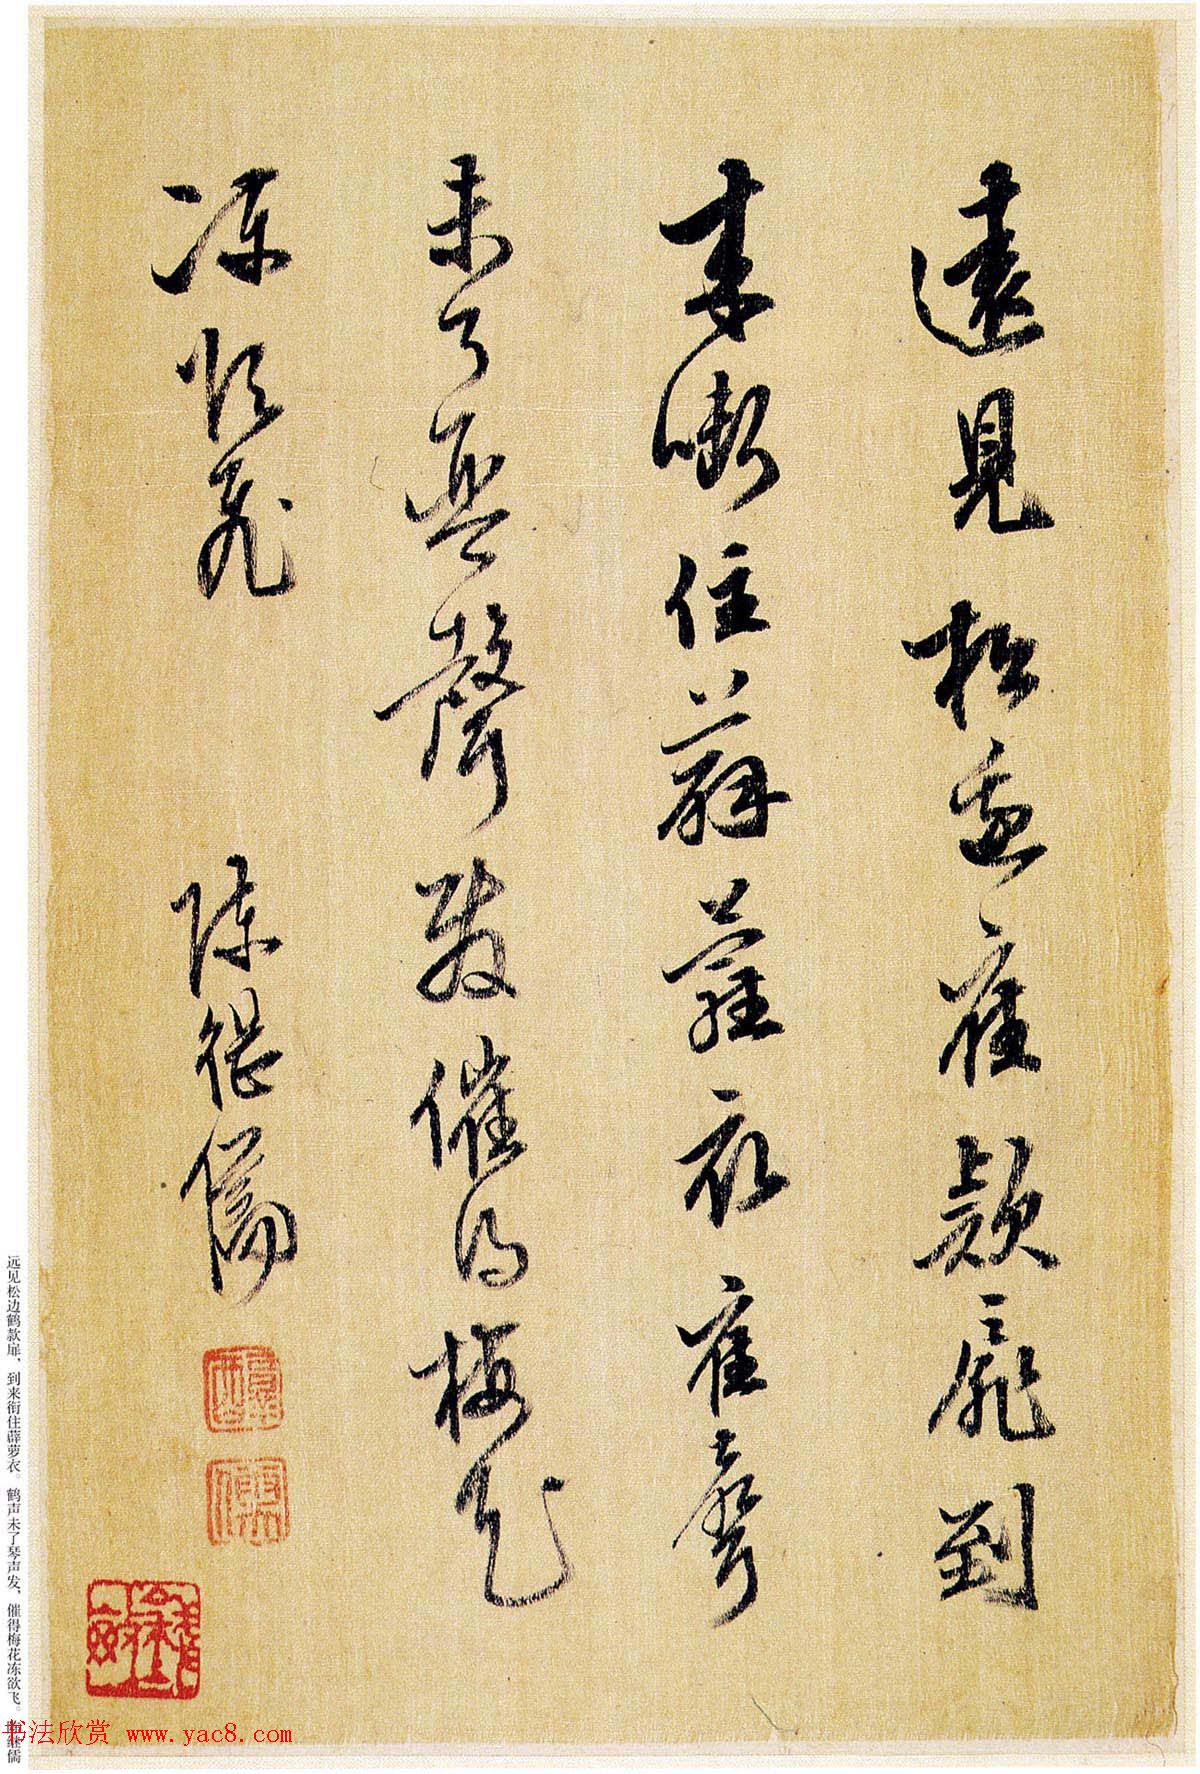 遠見松邊隺款扉到
来啣住薜蘿衣隺聲
未了琴聲發催得梅花
凍欲飛
陳継儒
远见松边鹤款扉，到来衔住薜萝衣。鹤声未了琴声发，催得梅花冻欲飞。陈继儒
书法欣赏 www.yac8.com